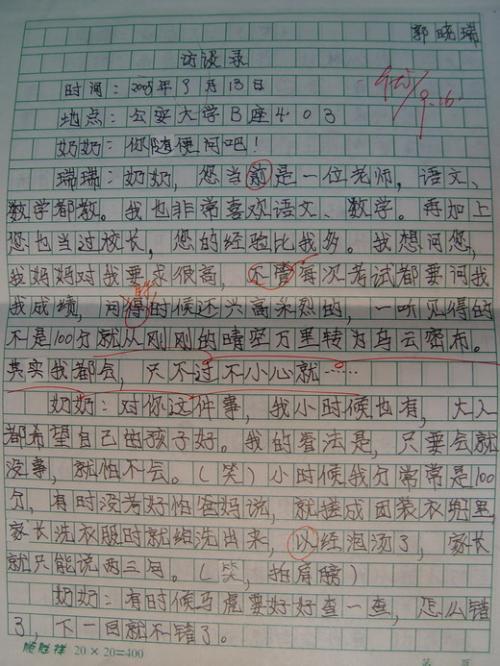 郭晓瑞
访谈录
时间：2008年9月13日
地点：公安大学B座403
奶奶：你随便问吧！
瑞瑞：奶奶，您当前是一位老师，语文、
数学都教。我也非常喜欢语文、数学。再加上
您也当过校长，您的经验比我多。我想问您，
我妈妈对我要求很高，不管每次考试都要问我
我成绩，问得时候还兴高采烈的，一听见得的
不是100分就从刚刚的晴空万里转为乌云密布。
其实我都会，只不过不小心就……
奶奶：对你这件事，我小时候也有，大人
都希望自己的孩子好。我的看法是，只要会就
没事，就怕不会。（笑）小时候我分常常是100
分，有时没考好怕爸妈说，就揉成团装衣兜里
家长洗衣服时就给洗出来，以经泡汤了，家长
就只能说两三句。（笑，拍肩膀）
奶奶：有时候马虎要好好查一查，怎么错
了，下一回就不错了。
20×20=400